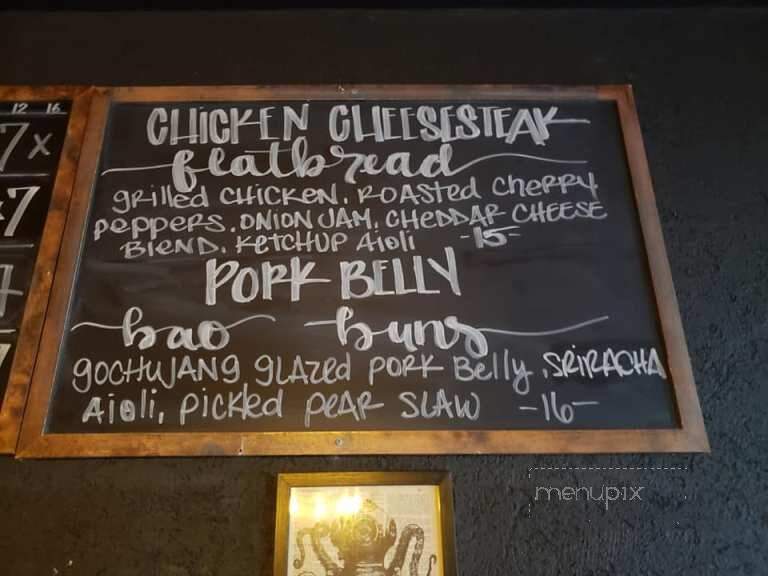 12 16
7x
7
CHICKEN CHEESESTEAK
flatbread
grilled CHICKEN, ROASTED CHERRY
PEPPERS, ONION JAM, CHEDDAR CHEESE
BLEND, KETCHUP Aioli -15-
PORK BELLY
bao buns
gOCHUJANG gLAZED PORK Belly, SRIRACHA
Aioli, PICKLED PEAR SLAW -16-
menupix